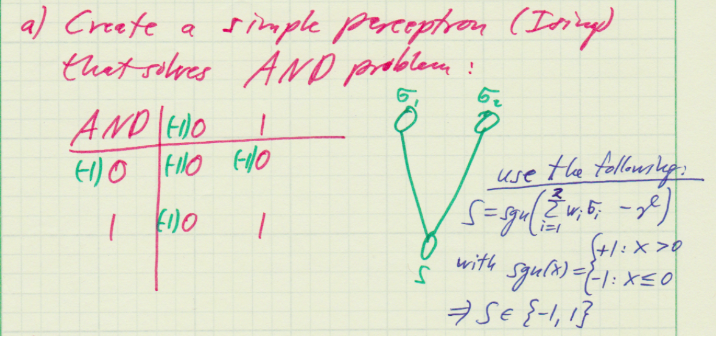 a) Create a simple perceptron (Ising)
that solves AND problem :
AND (-1)0 1
(-1)0 (-1)0 (-1)0
1 (-1)0 1
σ1 σ2
S
use the following:
S=sgn(∑_{i=1}^{2} w_i σ_i - ϑ)
with sgn(x)={+1: x>0
-1: x≤0
⇒ S∈{-1,1}